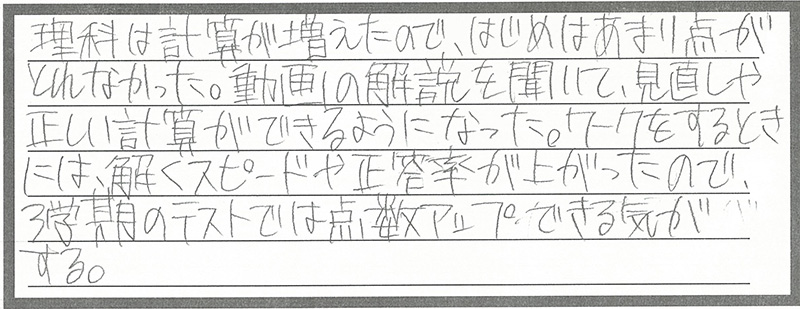 理科は計算が増えたので、はじめはあまり点が
とれなかった。動画の解説を聞いて、見直しや
正しい計算ができるようになった。ワークをするとき
には、解くスピードや正答率が上がったので、
3学期のテストでは点数アップできる気が
する。